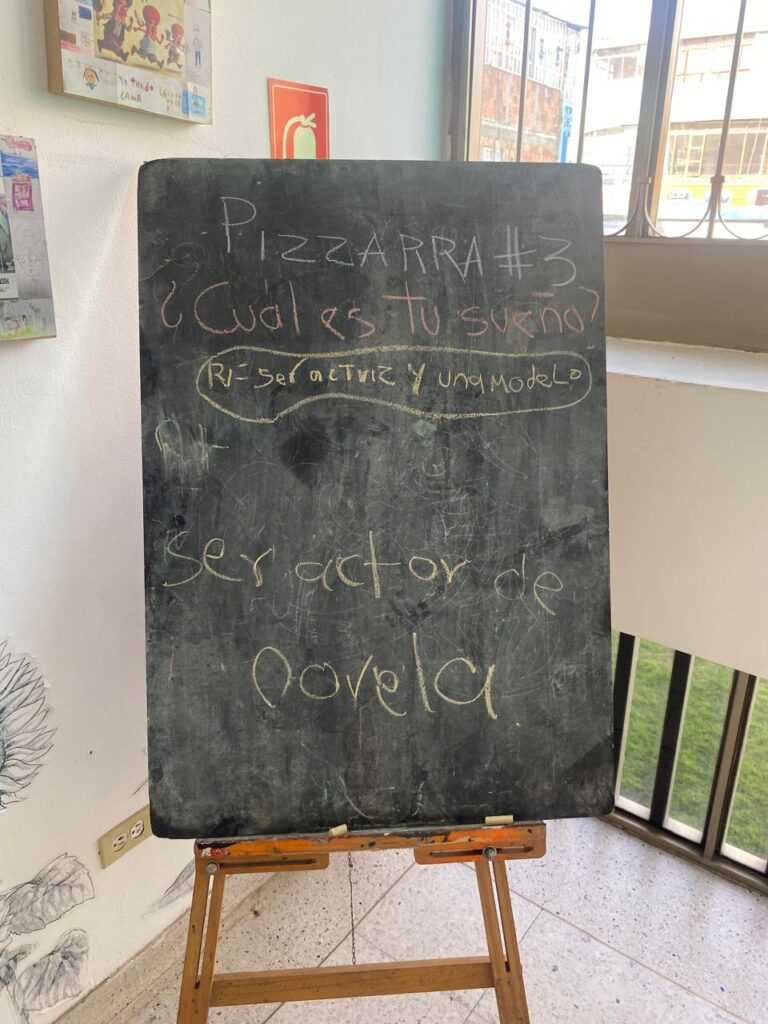 Yo tiendo
cama
PIZZARRA #3
¿Cuál es tu sueño?
R/= ser actriz y una modelo
R/=
ser actor de
novela